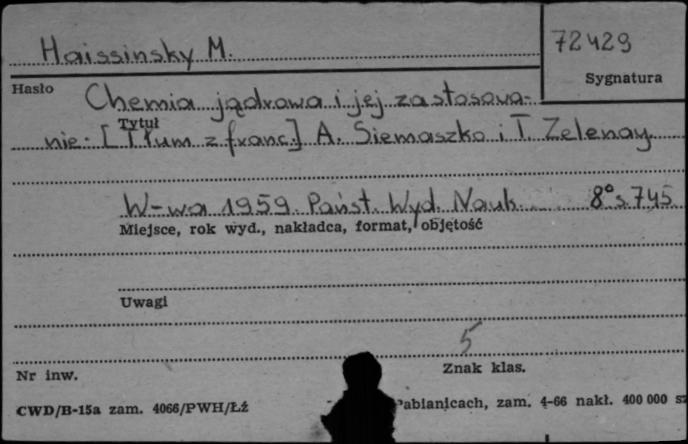 Haissinsky M.
72429
Sygnatura
Hasło
Chemia jądrowa i jej zastosowa-
Tytuł
nie. [Tłum z franc.] A. Siemaszko i T. Zelenay
W-wa 1959 Państ. Wyd. Nauk. 8° s. 745
Miejsce, rok wyd., nakładca, format, objętość
Uwagi
5
Nr inw.
Znak klas.
CWD/B-15a zam. 4066/PWH/Łź
Pabianicach, zam. 4-66 nakł. 400 000 sz